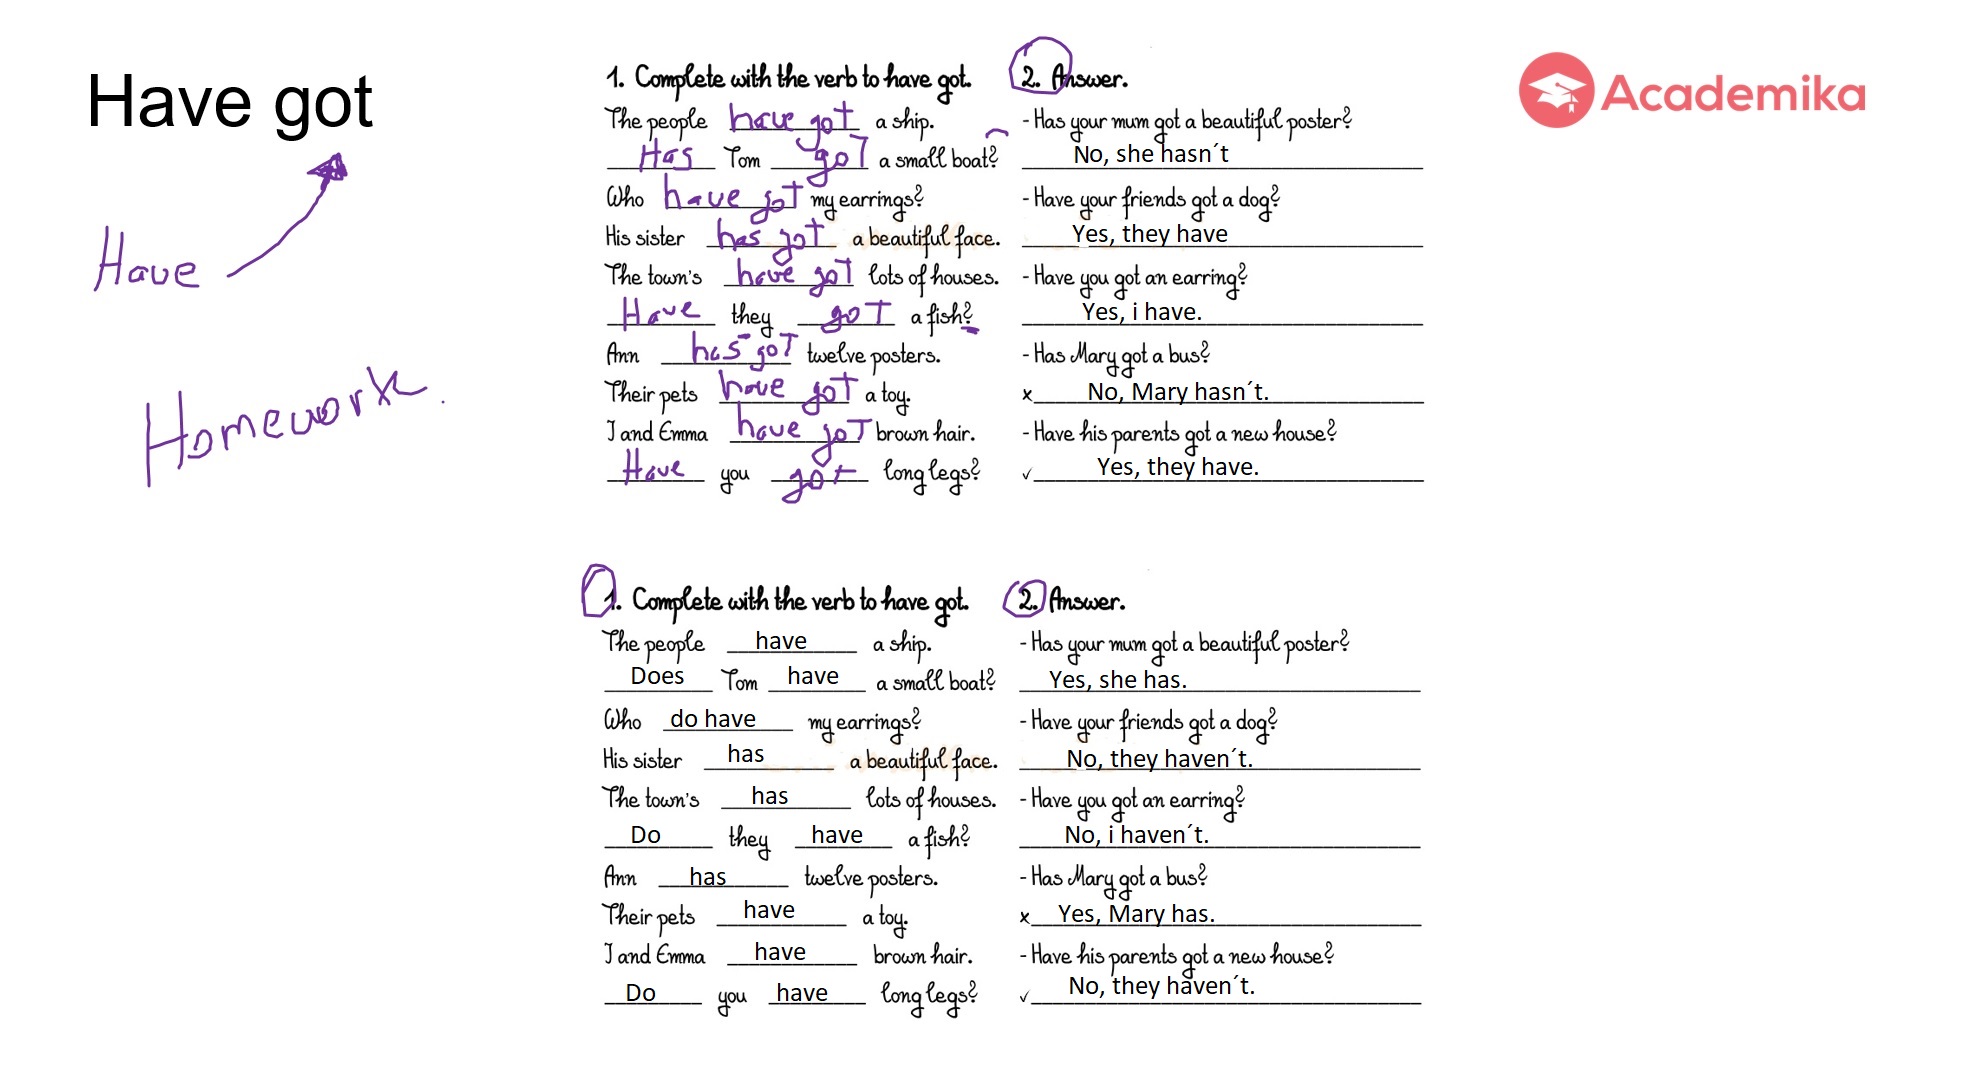 Have got
Academika
Have
Homework.
1. Complete with the verb to have got.
The people have got a ship.
Has Tom got a small boat?
Who have got my earrings?
His sister has got a beautiful face.
The town's have got lots of houses.
Have they got a fish?
Ann has got twelve posters.
Their pets have got a toy.
I and Emma have got brown hair.
Have you got long legs?
2. Answer.
- Has your mum got a beautiful poster?
No, she hasn´t
- Have your friends got a dog?
Yes, they have
- Have you got an earring?
Yes, i have.
- Has Mary got a bus?
x No, Mary hasn´t.
- Have his parents got a new house?
✓ Yes, they have.
1. Complete with the verb to have got.
The people have a ship.
Does Tom have a small boat?
Who do have my earrings?
His sister has a beautiful face.
The town's has lots of houses.
Do they have a fish?
Ann has twelve posters.
Their pets have a toy.
I and Emma have brown hair.
Do you have long legs?
2. Answer.
- Has your mum got a beautiful poster?
Yes, she has.
- Have your friends got a dog?
No, they haven´t.
- Have you got an earring?
No, i haven´t.
- Has Mary got a bus?
x Yes, Mary has.
- Have his parents got a new house?
✓ No, they haven´t.